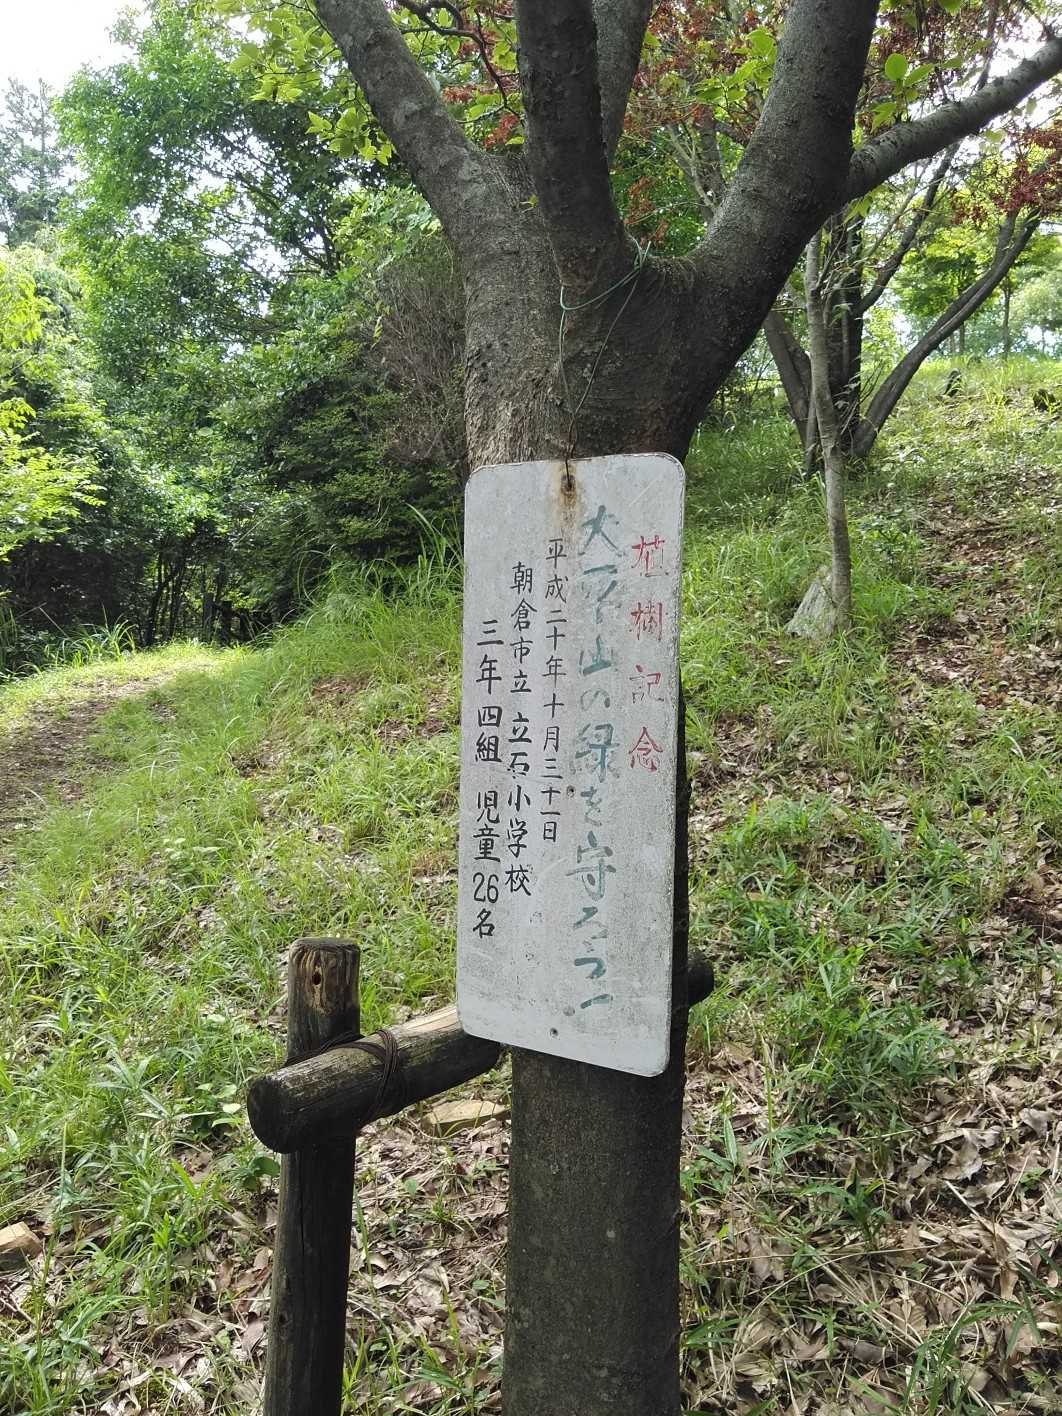 植樹記念
大平山の緑を守ろうー
平成二十年十月三十一日
朝倉市立 立石小学校
三年四組 児童26名